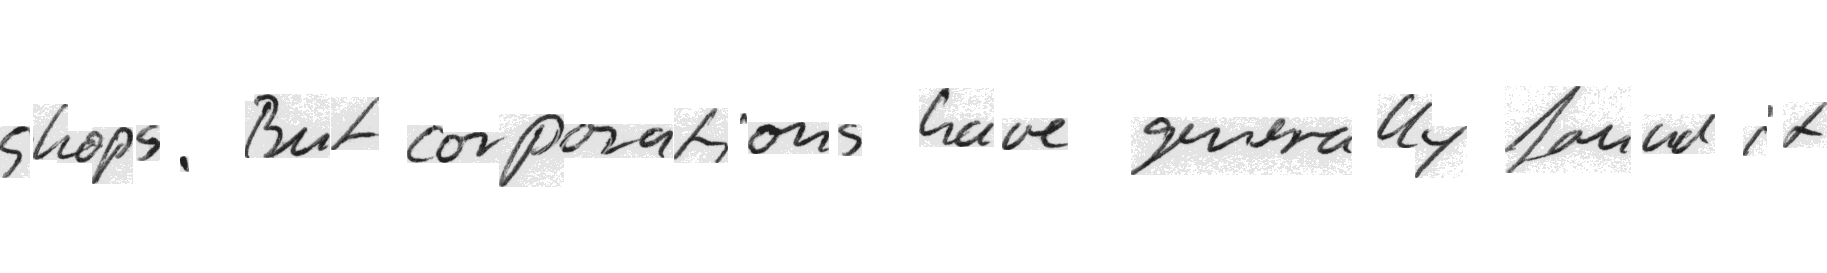 shops. But corporations have generally found it